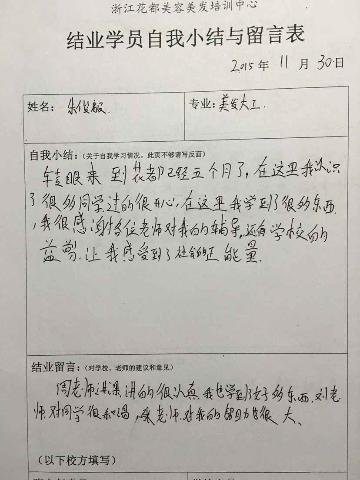 浙江花都美容美发培训中心
结业学员自我小结与留言表
2015年 11月 30日
姓名：
专业：美发大工
自我小结：(关于自我学习情况，此页不够请写反面)
转眼来到花都已经五个月了，在这里我认识
了很多同学过的很开心，在这里我学到了很多东西
，我很感谢各位老师对我的辅导，还有学校的
益剪，让我感受到了 能量.
结业留言：(对学校，老师的建议和意见)
周老师说课讲的很认真，我也学到了好多东西，刘老
师对同学很和谒，老师对我的努力也很大.
(以下校方填写)